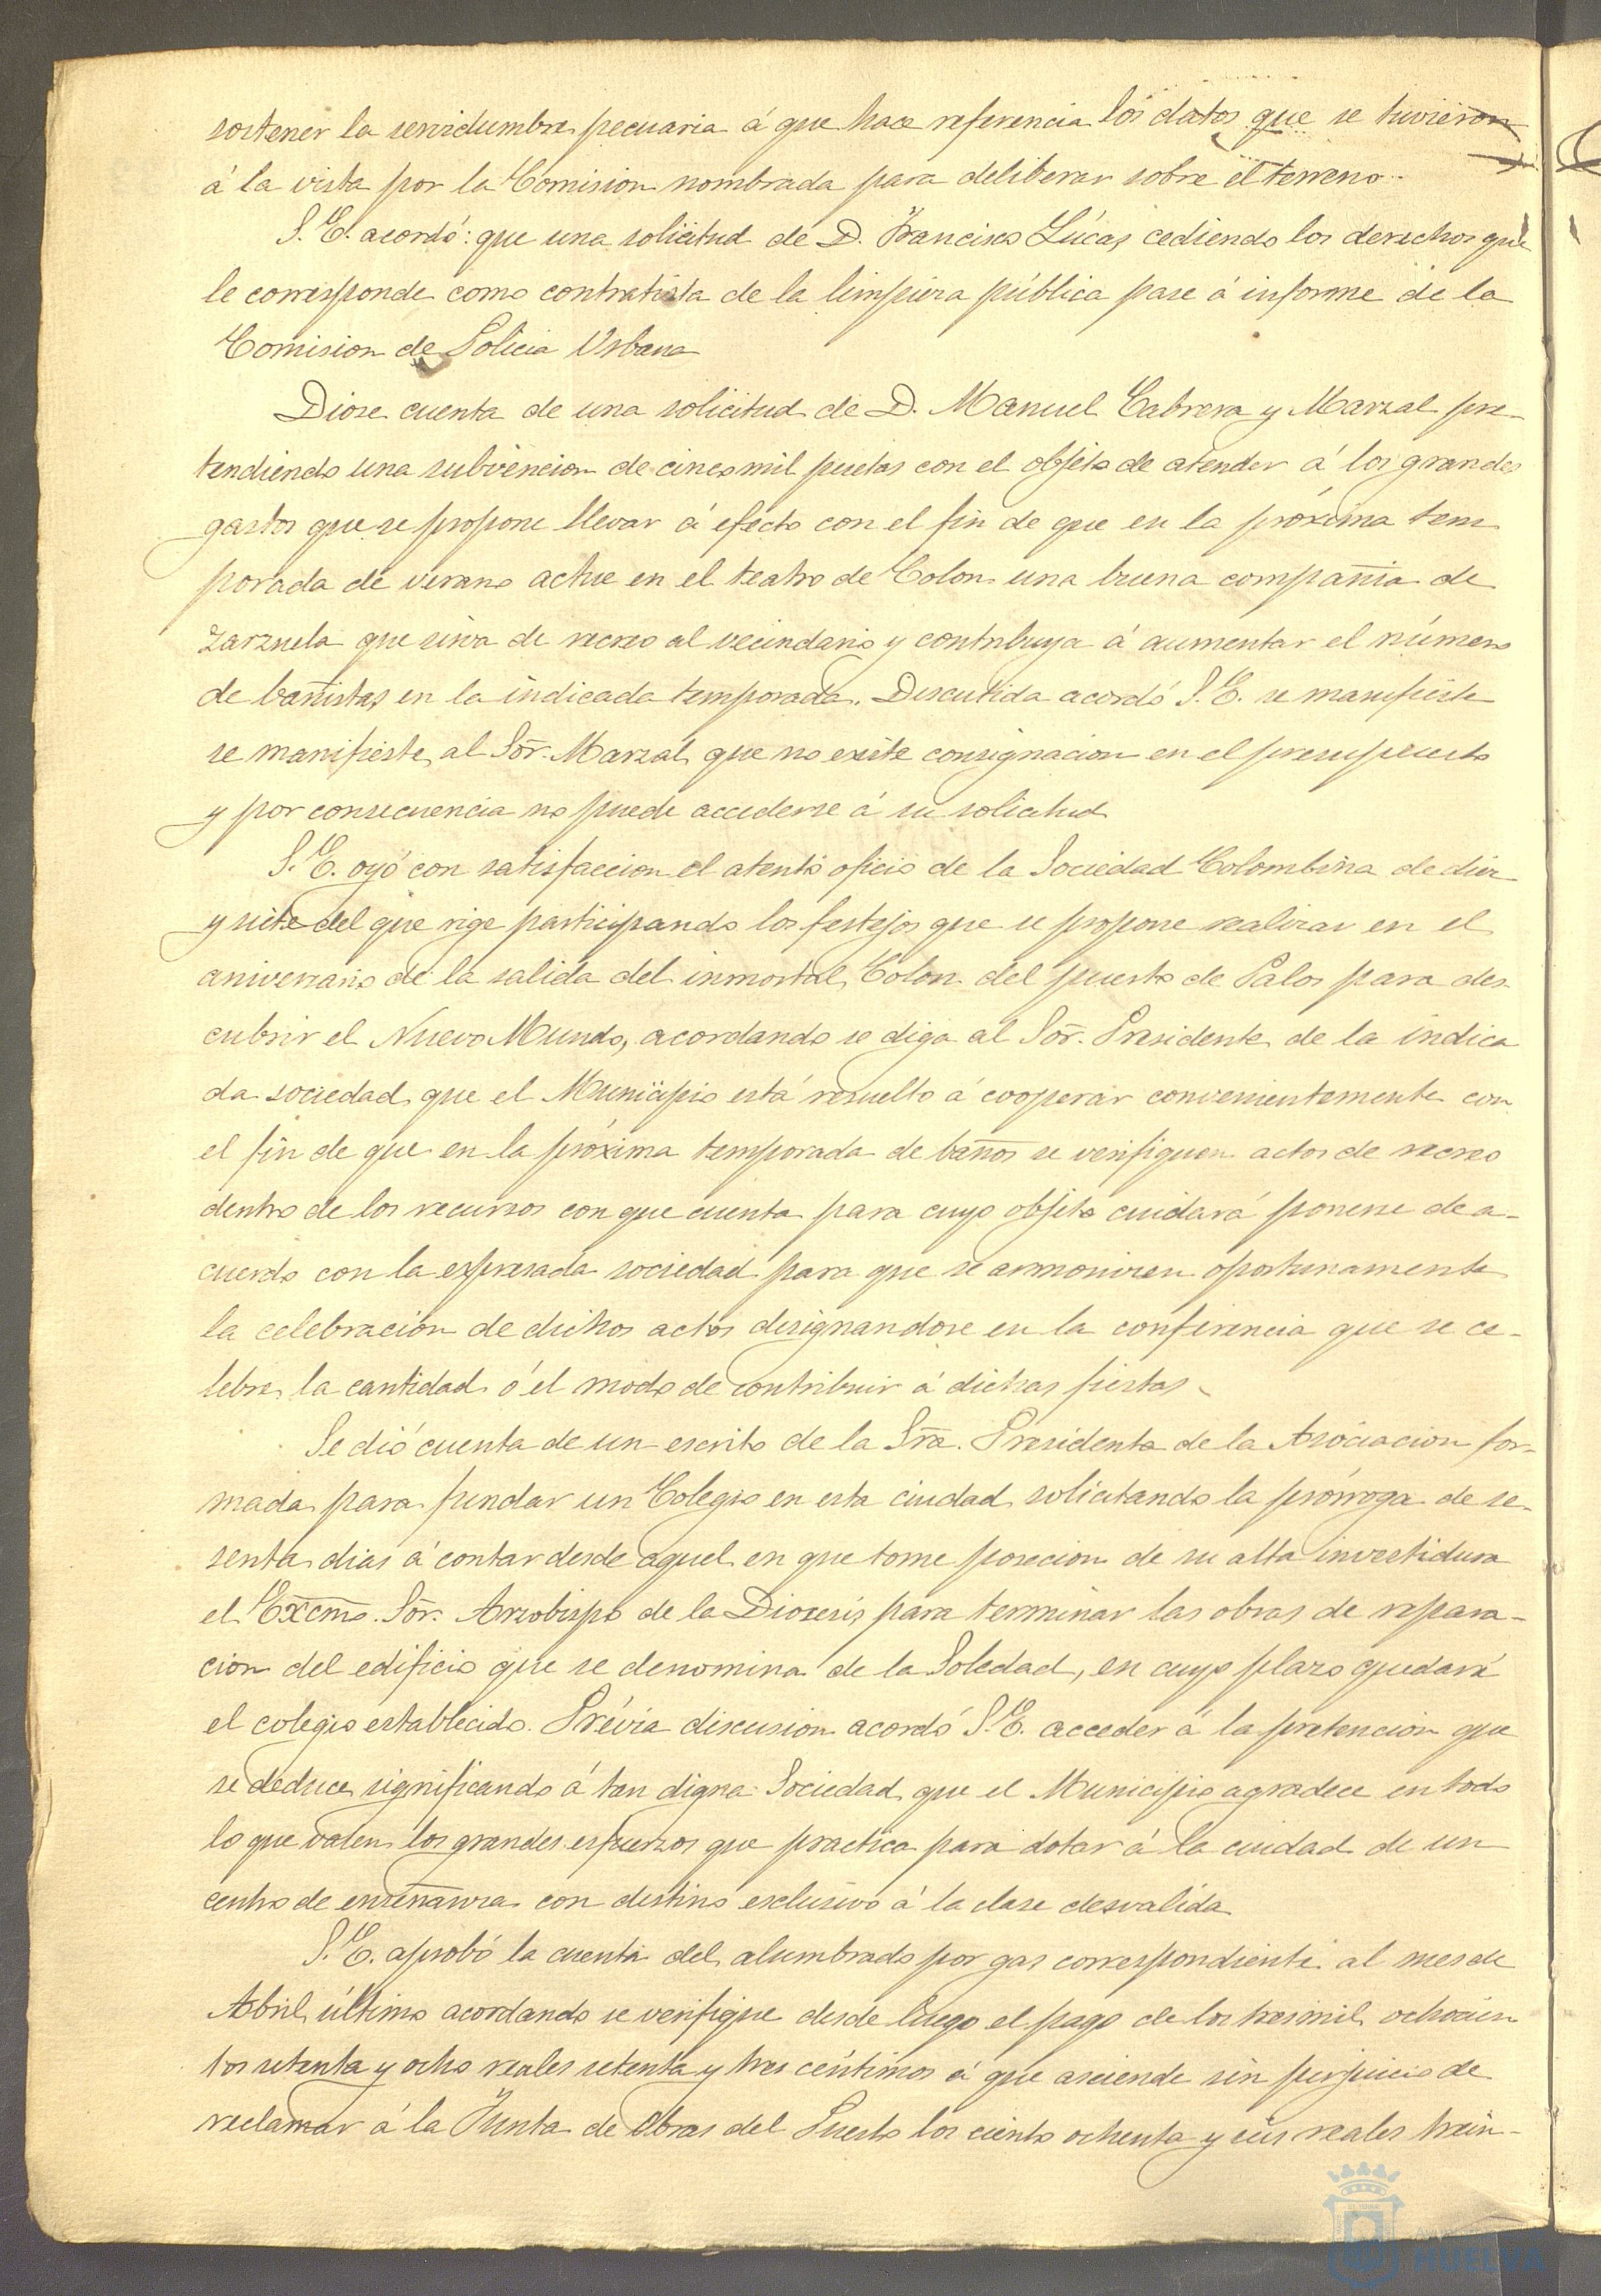 sostener la servidumbre pecuaria á que hace referencia los datos que se tuvieron
á la vista por la Comision nombrada para deliberar sobre el terreno.
S. E. acordó: que una solicitud de D. Francisco Lúcas cediendo los derechos que
le corresponde como contratista de la limpieza pública pase á informe de la
Comision de Policia Urbana
Diose cuenta de una solicitud de D. Manuel Cabrera y Marzal pre-
tendiendo una subvencion de cinco mil pesetas con el objeto de atender á los grandes
gastos que se propone llevar á efecto con el fin de que en la próxima tem
porada de verano actue en el teatro de Colon una buena compañia de
zarzuela que sirva de recreo al vecindario y contribuya á aumentar el número
de bañistas en la indicada temporada. Discutida acordó S. E. se manifieste
se manifieste al Sor. Marzal que no existe consignacion en el presupuesto
y por consecuencia no puede accederse á su solicitud
S. E. oyó con satisfaccion el atento oficio de la Sociedad Colombina de diez
y siete del que rige participando los festejos que se propone realizar en el
aniversario de la salida del inmortal Colon del puerto de Palos para des
cubrir el Nuevo Mundo, acordando se diga al Sor. Presidente de la indica
da sociedad que el Municipio está resuelto á cooperar convenientemente con
el fin de que en la próxima temporada de baños se verifiquen actos de recreo
dentro de los recursos con que cuenta para cuyo objeto cuidará ponerse de a-
cuerdo con la expresada sociedad para que se armonicen oportunamente
la celebracion de dichos actos designandose en la conferencia que se ce-
lebre la cantidad ó el modo de contribuir á dichas fiestas
Se dió cuenta de un escrito de la Sra. Presidenta de la Asociacion for-
mada para fundar un Colegio en esta ciudad solicitando la prórroga de se-
senta dias á contar desde aquel en que tome posecion de su alta investidura
el Excmo. Sor. Arzobispo de la Diocesis para terminar las obras de repara-
cion del edificio que se denomina de la Soledad, en cuyo plazo quedará
el colegio establecido. Prévia discusion acordó S. E. acceder á la pretencion que
se deduce significando á tan digna Sociedad que el Municipio agradece en todo
lo que valen los grandes esfuerzos que practica para dotar á la ciudad de un
centro de enseñanza con destino exclusivo á la clase desvalida
S. E. aprobó la cuenta del alumbrado por gas correspondiente al mes de
Abril último acordando se verifique desde luego el pago de los tres mil ochocien
tos setenta y ocho reales setenta y tres céntimos á que asciende sin perjuicio de
reclamar á la Junta de Obras del Puerto los ciento ochenta y seis reales trein-
HUELVA